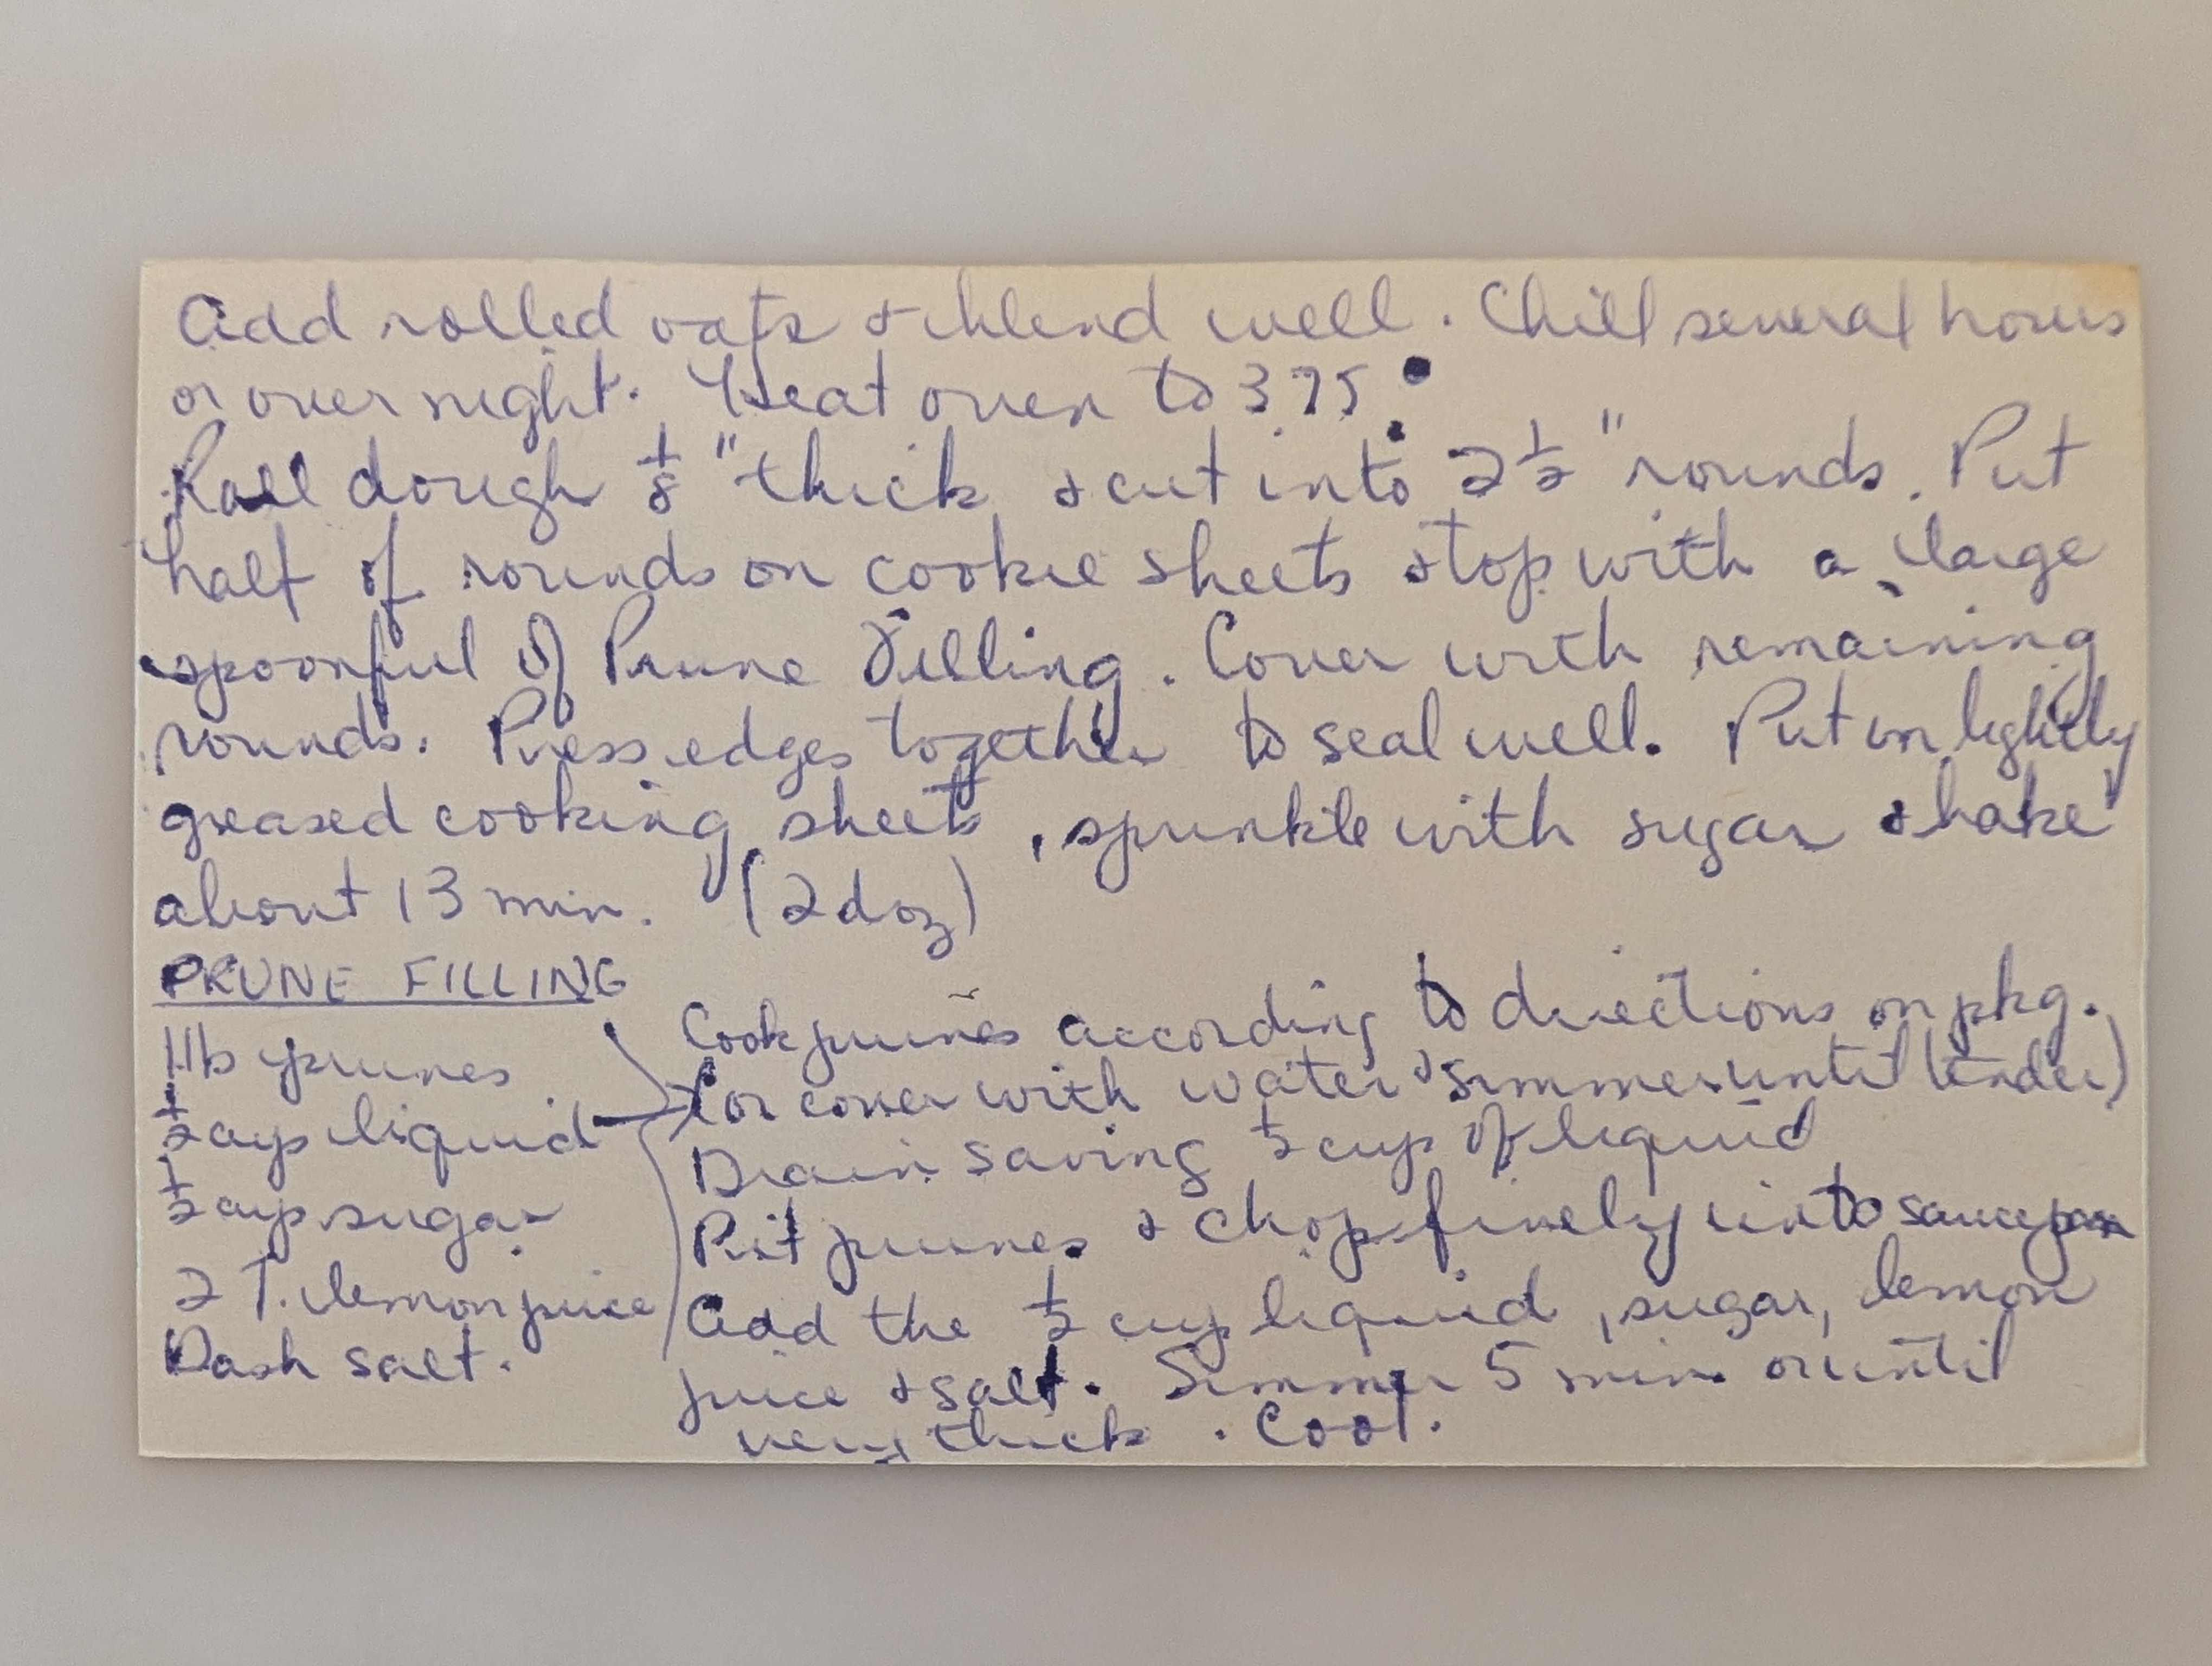 Add rolled oats & blend well. Chill several hours
or over night. Heat oven to 375°.
Roll dough 1/8" thick & cut into 2 1/2" rounds. Put
half of rounds on cookie sheets & top with a large
spoonful of Prune Filling. Cover with remaining
rounds. Press edges together to seal well. Put on lightly
greased cooking sheets, sprinkle with sugar & bake
about 13 min. (2 doz)
PRUNE FILLING
1 lb prunes
1/2 cup liquid
1/2 cup sugar
2 T. lemon juice
Dash salt.
Cook prunes according to directions on pkg.
(or cover with water & simmer until tender)
Drain saving 1/2 cup of liquid
Pit prunes & chop finely into saucepan
Add the 1/2 cup liquid, sugar, lemon
juice & salt. Simmer 5 min. or until
very thick. Cool.